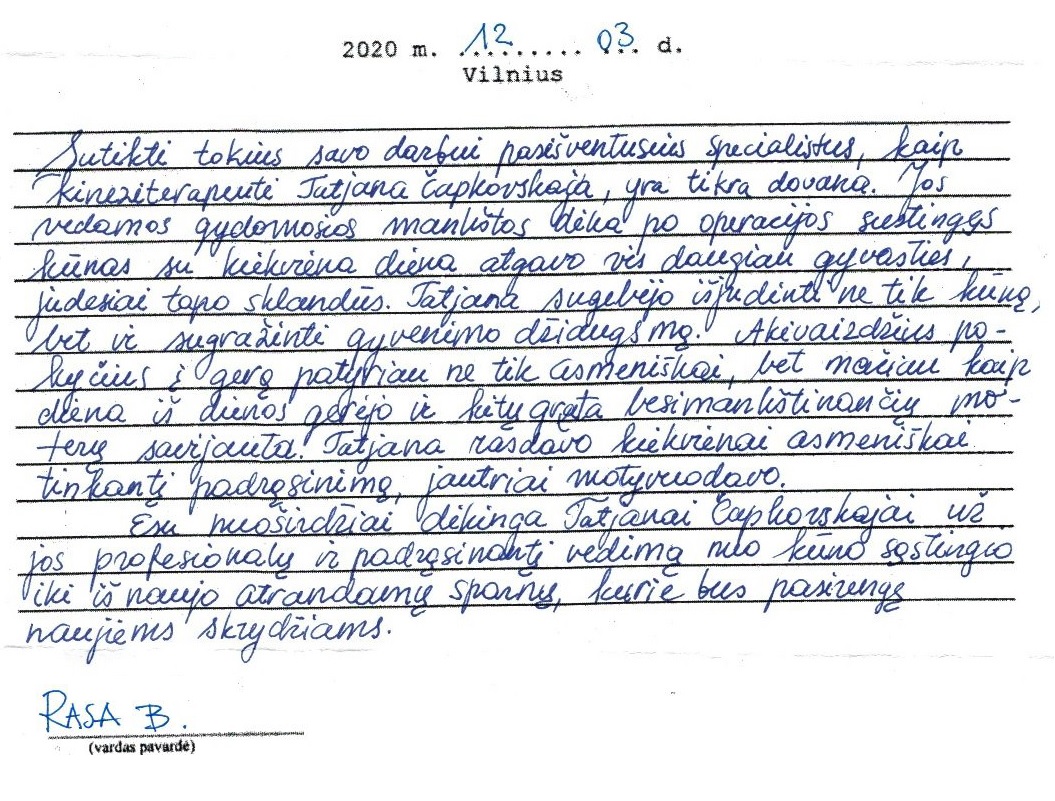 2020 m. 12 03 d.
Vilnius
Sutikti tokius savo darbui pasišventusius specialistus, kaip
kineziterapeutė Tatjana Čapkovskaja, yra tikra dovana. Jos
vedamos gydomosios mankštos dėka po operacijos sustingęs
kūnas su kiekviena diena atgavo vis daugiau gyvasties,
judesiai tapo sklandūs. Tatjana sugebėjo išjudinti ne tik kūną,
bet ir sugrąžinti gyvenimo džiaugsmą. Akivaizdžius po-
kyčius į gerą patyriau ne tik asmeniškai, bet mačiau kaip
diena iš dienos gerėjo ir kitų greta besimankštinančių mo-
terų savijauta. Tatjana rasdavo kiekvienai asmeniškai
tinkantį padrąsinimą, jautriai motyvuodavo.
Esu nuoširdžiai dėkinga Tatjanai Čapkovskajai už
jos profesionalų ir padrąsinantį vedimą nuo kūno sąstingio
iki iš naujo atrandamų sparnų, kurie bus pasirengę
naujiems skrydžiams.
RASA B.
(vardas pavardė)